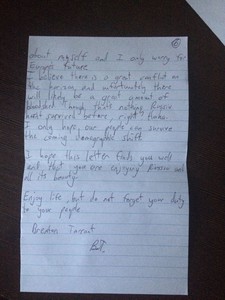 6
about myself and I only worry for
Europes future
I believe there is a great conflict on
the horizon and unfortunately there
will likely be a great amount of
bloodshed though thats nothing Russia
hasnt survived before, right? haha
I only hope our people can survive
the coming demographic shift
I hope this letter finds you well
and that you are enjoying Russia and
all its beauty
Enjoy life, but do not forget your duty
to your people
Brenton Tarrant
B.T.